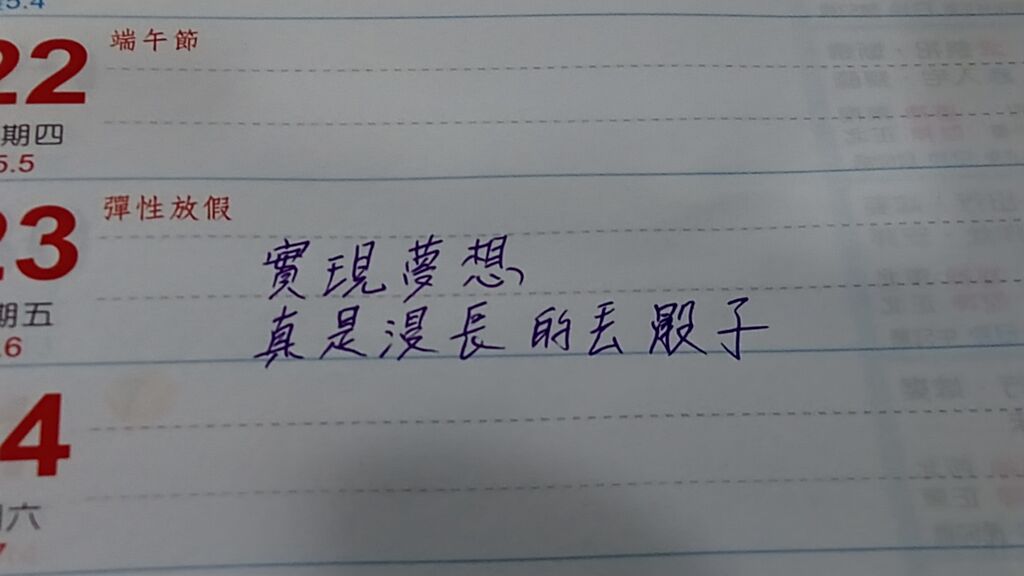 5.4
22
端午節
期四
5.5
23
彈性放假
實現夢想,
真是漫長的丟骰子
期五
.6
4
六
7